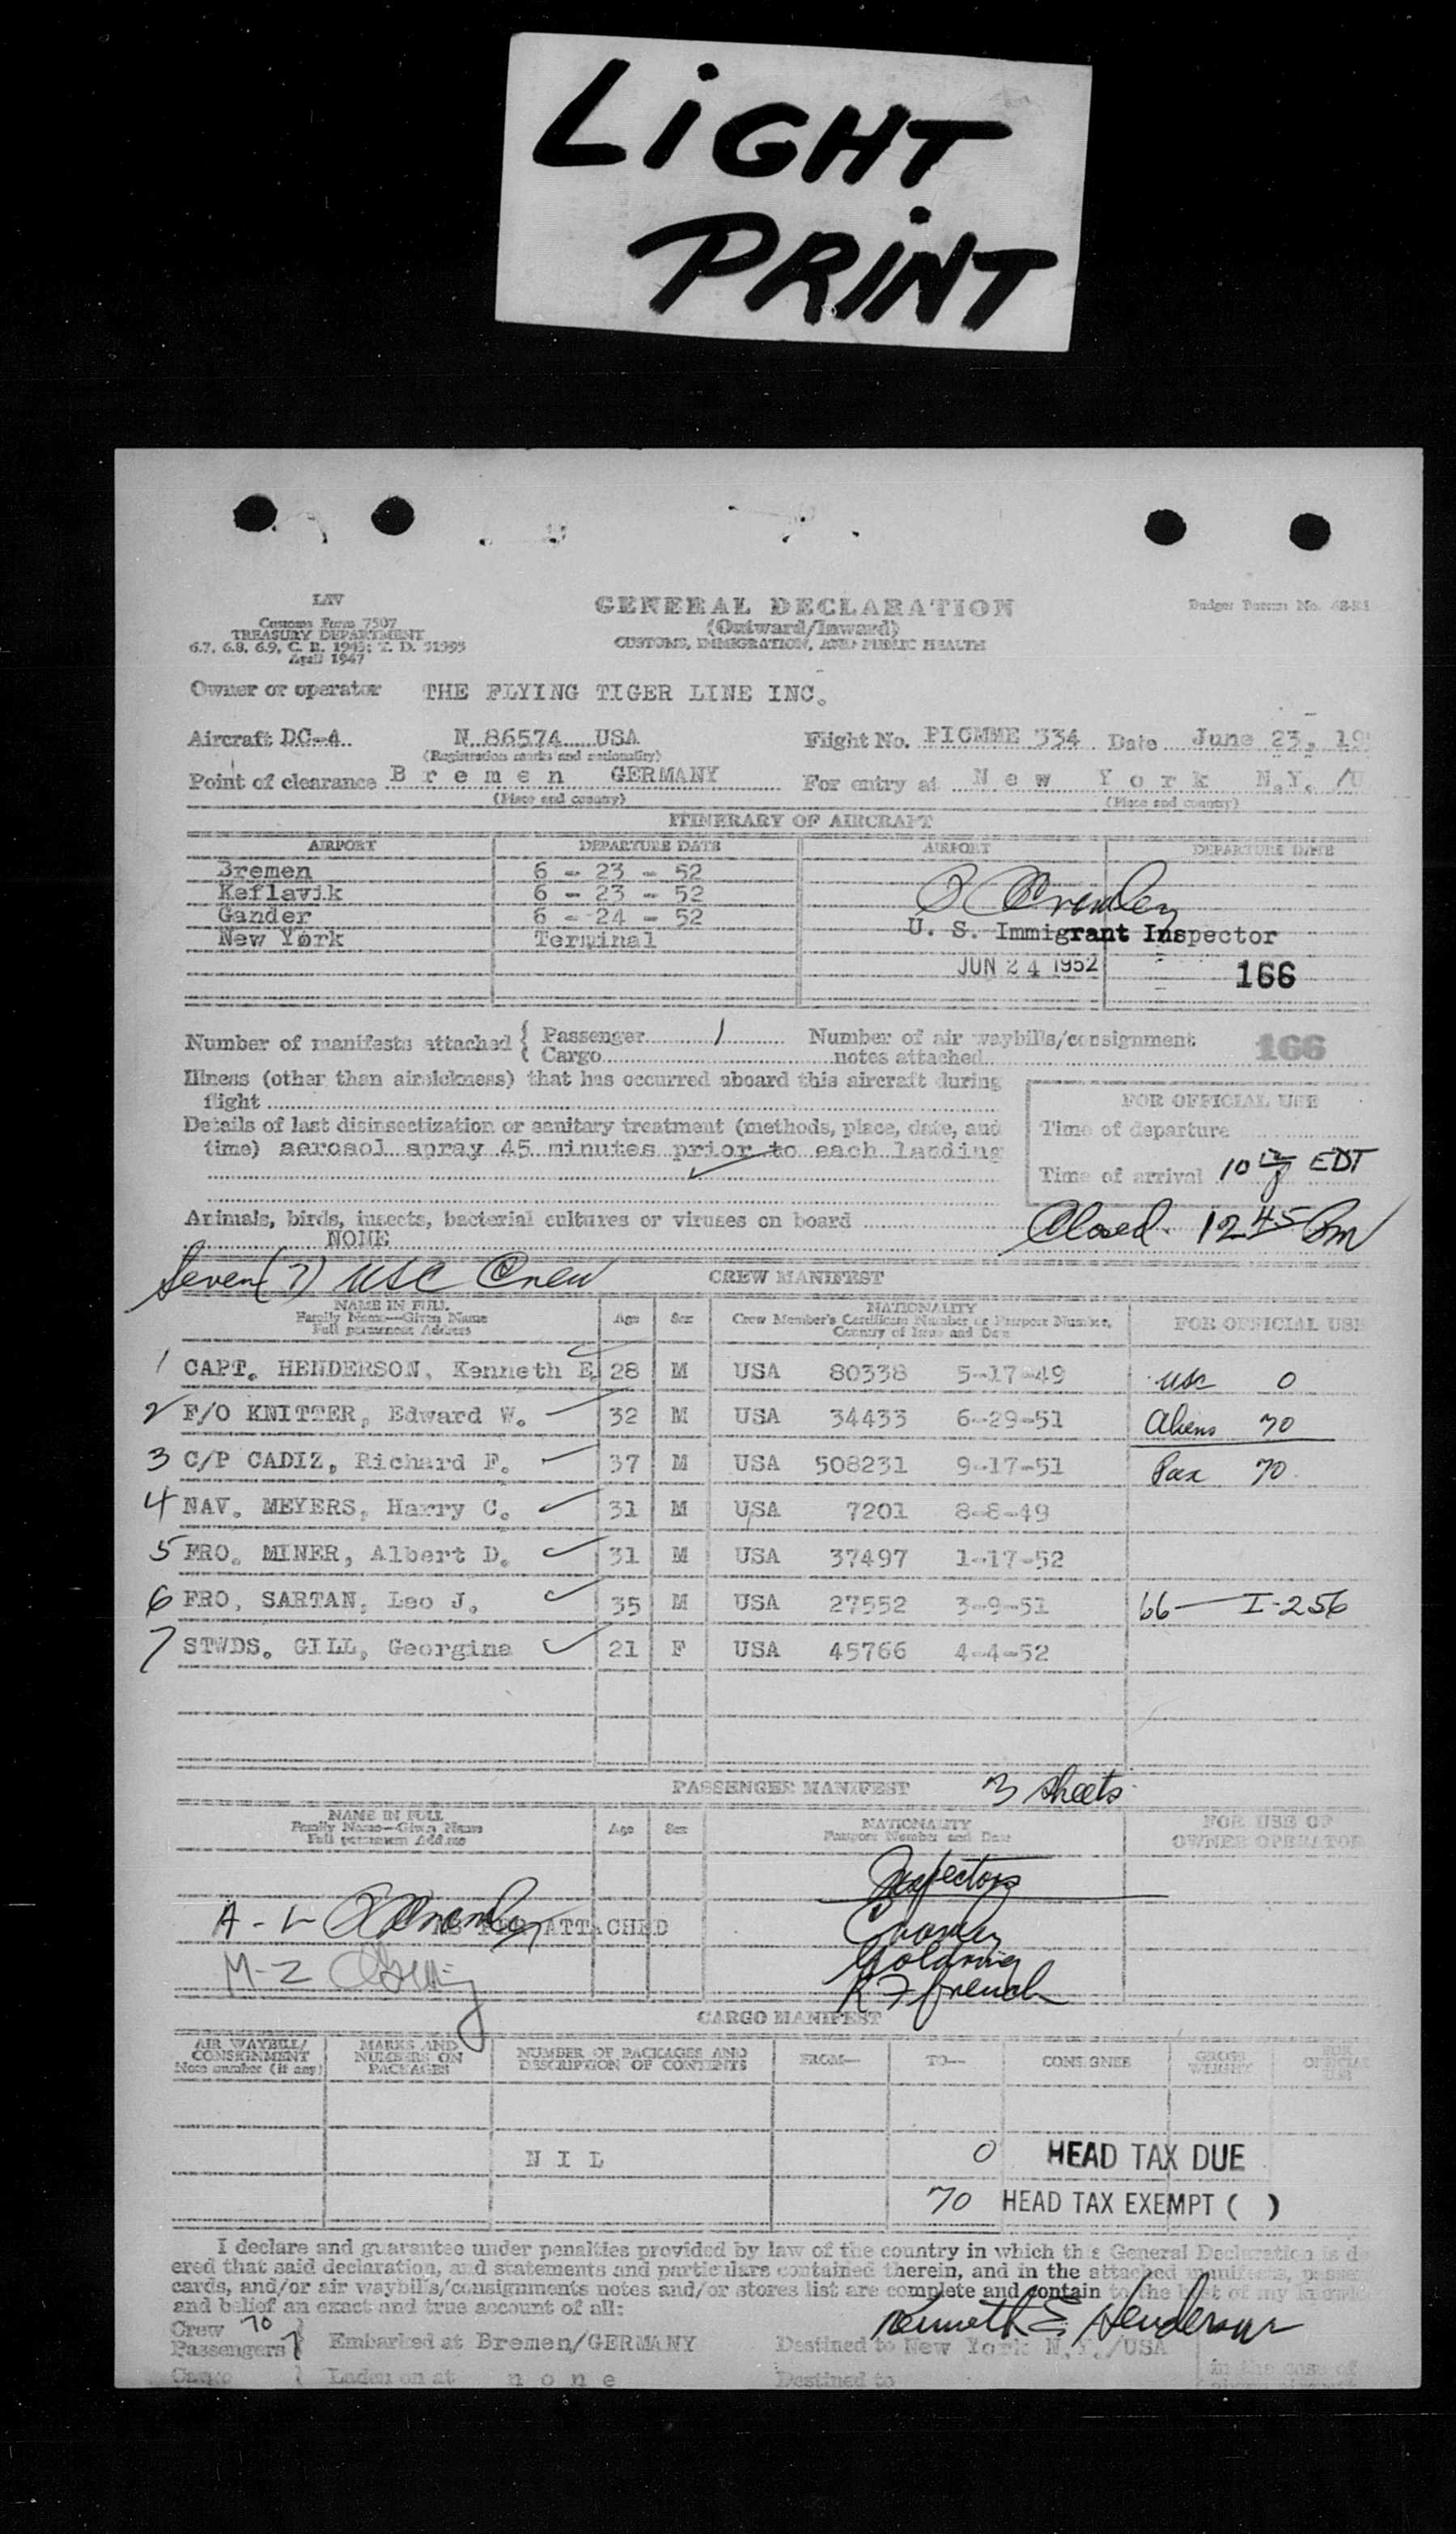 LiGHT
PRiNT
LAV
Customs Form 7507
TREASURY DEPARTMENT
6.7, 6.8, 6.9, C. R. 1943; T. D. 51995
April 1947
GENERAL DECLARATION
(Outward/Inward)
CUSTOMS, IMMIGRATION, AND PUBLIC HEALTH
Owner or operator THE FLYING TIGER LINE INC.
Aircraft DC-4 N 86574 USA Flight No. PICMME 334 Date June 23, 19
(Registration marks and nationality)
Point of clearance Bremen GERMANY For entry at New York N.Y. /U
(Place and country) (Place and country)
ITINERARY OF AIRCRAFT
AIRPORT DEPARTURE DATE AIRPORT DEPARTURE DATE
Bremen 6 - 23 - 52
Keflavik 6 - 23 - 52
Gander 6 - 24 - 52
New York Terminal
U. S. Immigrant Inspector
JUN 24 1952 166
Number of manifests attached { Passenger 1 Number of air waybills/consignment
Cargo notes attached
166
Illness (other than airsickness) that has occurred aboard this aircraft during
flight
FOR OFFICIAL USE
Details of last disinsectization or sanitary treatment (methods, place, date, and
time) aerosol spray 45 minutes prior to each landing
Time of departure
Time of arrival EDT
Animals, birds, insects, bacterial cultures or viruses on board
NONE
Closed 12 45 Pm
Seven (7) USC Crew
CREW MANIFEST
NAME IN FULL
Family Name—Given Name
Full permanent Address
Age Sex
NATIONALITY
Crew Member's Certificate Number or Passport Number,
Country of Issue and Date
FOR OFFICIAL USE
1 CAPT. HENDERSON, Kenneth E. 28 M USA 80338 5-17-49 USC 0
2 F/O KNITTER, Edward W. 32 M USA 34433 6-29-51 Aliens 70
3 C/P CADIZ, Richard F. 37 M USA 508231 9-17-51 Pax 70
4 NAV. MEYERS, Harry C. 31 M USA 7201 8-8-49
5 FRO. MINER, Albert D. 31 M USA 37497 1-17-52
6 FRO, SARTAN, Leo J. 35 M USA 27552 3-9-51 66 — I-256
7 STWDS. GILL, Georgina 21 F USA 45766 4-4-52
PASSENGER MANIFEST 3 sheets
NAME IN FULL
Family Name—Given Name
Full permanent Address
Age Sex
NATIONALITY
Passport Number and Date
FOR USE OF
OWNER OPERATOR
Inspectors
A - L AS PER ATTACHED
M-Z
K F French
CARGO MANIFEST
AIR WAYBILL/
CONSIGNMENT
Note number (if any)
MARKS AND
NUMBERS ON
PACKAGES
NUMBER OF PACKAGES AND
DESCRIPTION OF CONTENTS
FROM— TO— CONSIGNEE
GROSS
WEIGHT
FOR
OFFICIAL
USE
NIL 0 HEAD TAX DUE
70 HEAD TAX EXEMPT ( )
I declare and guarantee under penalties provided by law of the country in which this General Declaration is d
ered that said declaration, and statements and particulars contained therein, and in the attached manifests, passen
cards, and/or air waybills/consignments notes and/or stores list are complete and contain to the best of my knowle
and belief an exact and true account of all:
Kenneth E Henderson
Crew 70
Passengers 7 } Embarked at Bremen/GERMANY Destined to New York N.Y./USA
Cargo } Laden on at none Destined to
in the case of